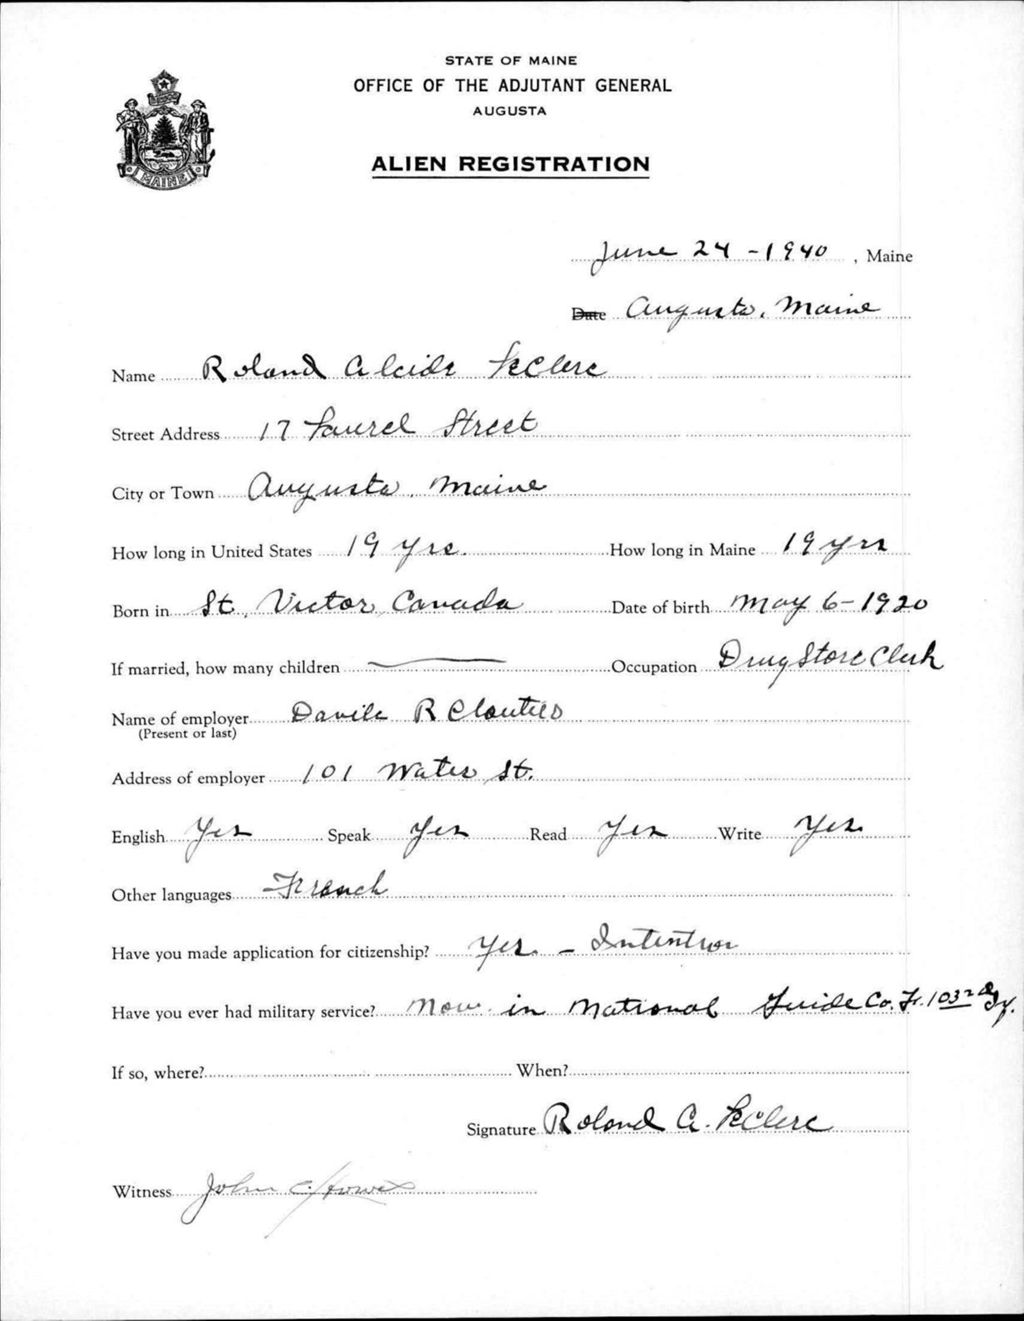 STATE OF MAINE
OFFICE OF THE ADJUTANT GENERAL
AUGUSTA
ALIEN REGISTRATION
MAINE
June 24 - 1940, Maine
Date Augusta, Maine
Name Roland Alcide LeClerc
Street Address 17 Laurel Street
City or Town Augusta, Maine
How long in United States 19 yrs. How long in Maine 19 yrs
Born in St. Victor, Canada Date of birth May 6 - 1920
If married, how many children — Occupation Drug Store Clerk
Name of employer Davila R Cloutier
(Present or last)
Address of employer 101 Water St.
English Yes Speak Yes Read Yes Write Yes
Other languages French
Have you made application for citizenship? Yes - Intention
Have you ever had military service? Now in National Guide Co.
If so, where? When?
Signature Roland A. LeClerc
Witness John C.